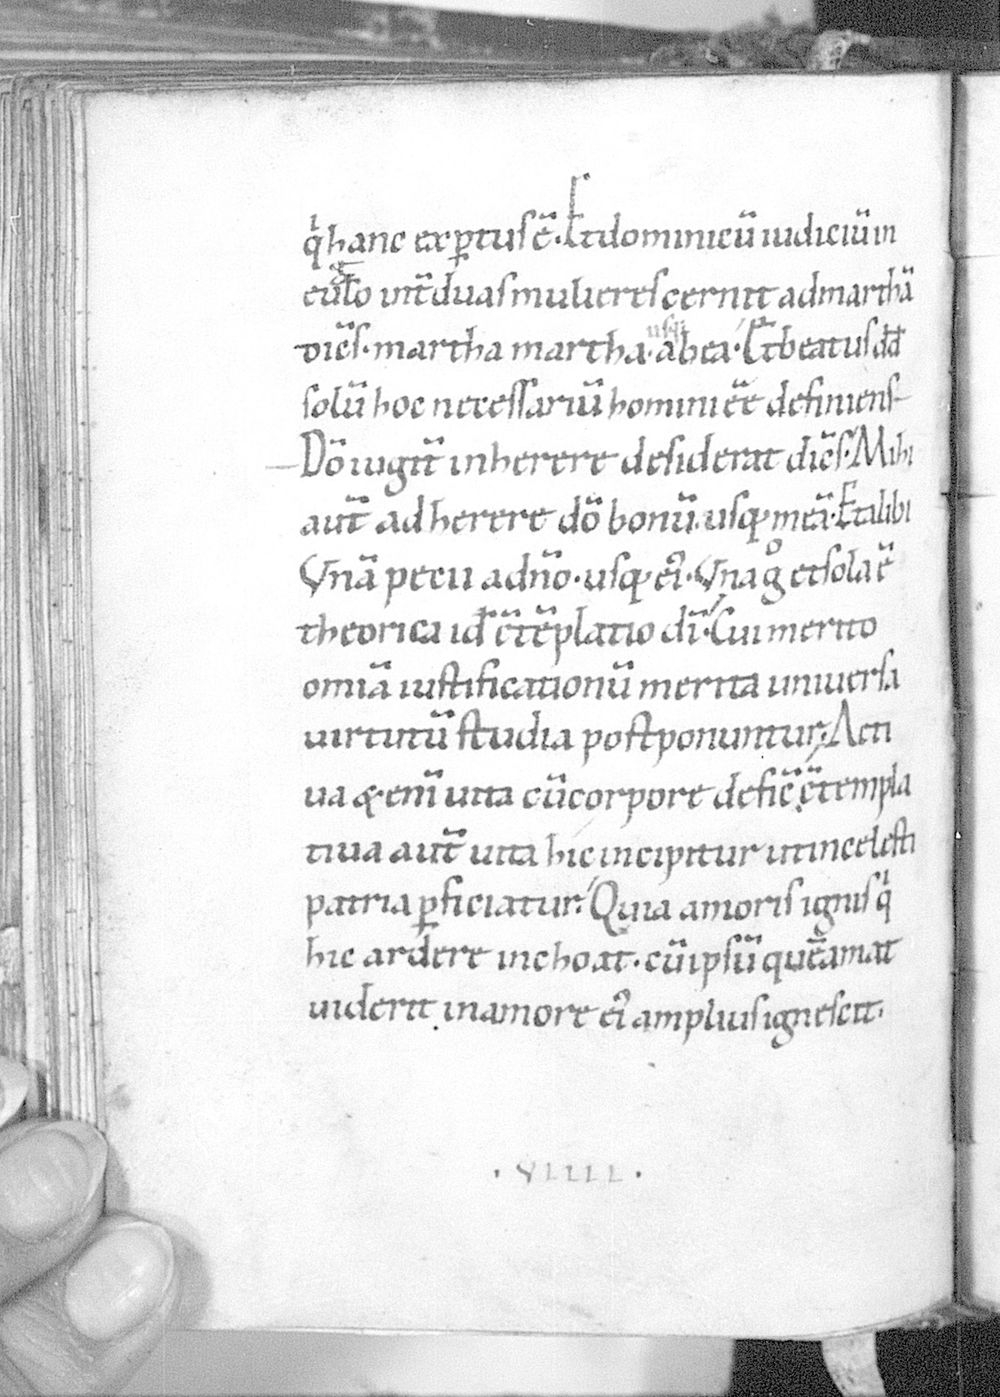 qͥ hanc exꝑtus ē̃. Et dominicū iudiciū in
eu̅lo int̄ duas mulieres cernit ad marthā
dicẽs. martha martha. usq; ab ea. Et beatus dd̄
solū hoc necessariū homini eē definiens
Dō iugit̄ inherere desiderat dicẽs. Mihi
aut̄ adherere dō bonū. usq; meā. Et alibi
Vnā pecii a dño. usq; ei᷒. Vna gͦ et sola ē̃
theorica id ē̃ c̄tēplatio di̅. Cui merito
omīa iustificationū merita uniuersa
uirtutū studia postponuntur. Acti
ua &enī uita cū corpore defic̄ c̄templa
tiua aut̄ uita hic incipitur ut in celesti
patria ꝑficiatur. Quia amoris ignis qͥ
hic ardere inchoat. cū ipsū quē amat
uiderit in amore ei᷒ amplius ignescit.
. VIIII .